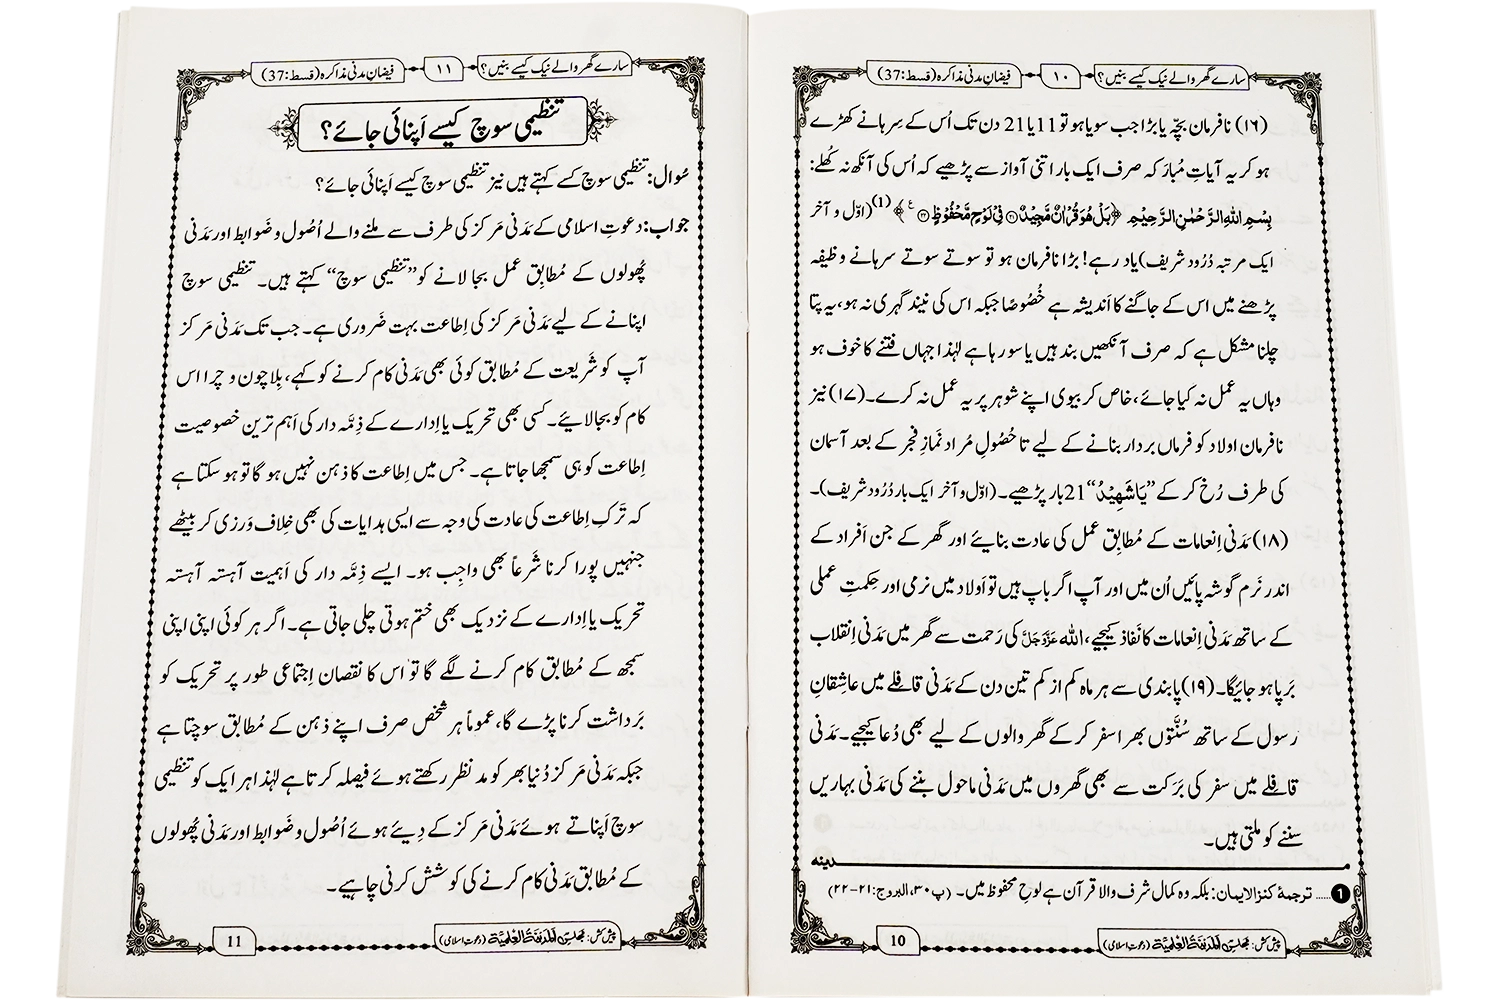 سارے گھر والے نیک کیسے بنیں؟ ١٠ فیضانِ مدنی مذاکرہ (قسط:37)
(١٦) نافرمان بچّہ یا بڑا جب سویا ہو تو 11 یا 21 دن تک اُس کے سِرہانے کھڑے
ہو کر یہ آیاتِ مُبارَکہ صرف ایک بار اتنی آواز سے پڑھیے کہ اُس کی آنکھ نہ کُھلے:
بِسْمِ اللّٰهِ الرَّحْمٰنِ الرَّحِیْمِ ﴿بَلْ هُوَ قُرْاٰنٌ مَّجِیْدٌۙ۝۲۱ فِیْ لَوْحٍ مَّحْفُوْظٍ۠۝۲۲﴾ (1) (اوّل و آخر
ایک مرتبہ دُرُود شریف) یاد رہے! بڑا نافرمان ہو تو سوتے سوتے سرہانے وظیفہ
پڑھنے میں اس کے جاگنے کا اَندیشہ ہے خُصُوصًا جبکہ اس کی نیند گہری نہ ہو، یہ پتا
چلنا مشکل ہے کہ صرف آنکھیں بند ہیں یا سو رہا ہے لہٰذا جہاں فتنے کا خوف ہو
وہاں یہ عمل نہ کیا جائے، خاص کر بیوی اپنے شوہر پر یہ عمل نہ کرے۔ (١٧) نیز
نافرمان اولاد کو فرماں بردار بنانے کے لیے تا حُصُولِ مُراد نَمازِ فجر کے بعد آسمان
کی طرف رُخ کر کے ”یَاشَھِیْدُ“ 21 بار پڑھیے۔ (اوّل و آخر ایک بار دُرُود شریف)۔
(١٨) مَدَنی اِنعامات کے مُطابِق عمل کی عادت بنایئے اور گھر کے جن اَفراد کے
اندر نَرم گوشہ پائیں اُن میں اور آپ اگر باپ ہیں تو اَولاد میں نرمی اور حِکمتِ عملی
کے ساتھ مَدَنی اِنعامات کا نَفاذ کیجیے، اللہ عَزَّوَجَلَّ کی رَحمت سے گھر میں مَدَنی اِنقلاب
بَرپا ہو جائیگا۔ (١٩) پابندی سے ہر ماہ کم از کم تین دن کے مَدَنی قافلے میں عاشِقانِ
رسول کے ساتھ سُنَّتوں بھرا سفر کر کے گھر والوں کے لیے بھی دُعا کیجیے۔ مَدَنی
قافِلے میں سفر کی بَرَکت سے بھی گھروں میں مَدَنی ماحول بننے کی مَدَنی بہاریں
سننے کو ملتی ہیں۔
مدینہ
1 ...... ترجمۂ کنزالایمان: بلکہ وہ کمال شرف والا قرآن ہے لوحِ محفوظ میں۔ (پ٣٠، البروج: ٢١-٢٢)
پیش کش: مجلس المدینۃ العلمیۃ (دعوتِ اسلامی) 10
سارے گھر والے نیک کیسے بنیں؟ ١١ فیضانِ مدنی مذاکرہ (قسط:37)
تنظیمی سوچ کیسے اَپنائی جائے؟
سُوال: تنظیمی سوچ کسے کہتے ہیں نیز تنظیمی سوچ کیسے اَپنائی جائے؟
جواب: دعوتِ اسلامی کے مَدَنی مَرکز کی طرف سے ملنے والے اُصُول و ضَوابط اور مَدَنی
پُھولوں کے مُطابِق عمل بجا لانے کو ”تنظیمی سوچ“ کہتے ہیں۔ تنظیمی سوچ
اپنانے کے لیے مَدَنی مَرکز کی اِطاعت بہت ضَروری ہے۔ جب تک مَدَنی مَرکز
آپ کو شَریعت کے مُطابق کوئی بھی مَدَنی کام کرنے کو کہے، بِلا چون و چرا اس
کام کو بجا لایئے۔ کسی بھی تحریک یا اِدارے کے ذِمَّہ دار کی اَہم ترین خصوصیت
اِطاعت کو ہی سمجھا جاتا ہے۔ جس میں اِطاعت کا ذہن نہیں ہو گا تو ہو سکتا ہے
کہ تَرکِ اِطاعت کی عادت کی وجہ سے ایسی ہدایات کی بھی خِلاف وَرزی کر بیٹھے
جنہیں پورا کرنا شَرعاً بھی واجِب ہو۔ ایسے ذِمَّہ دار کی اَہمیت آہستہ آہستہ
تحریک یا اِدارے کے نزدیک بھی ختم ہوتی چلی جاتی ہے۔ اگر ہر کوئی اپنی اپنی
سمجھ کے مُطابق کام کرنے لگے گا تو اس کا نقصان اِجتماعی طور پر تحریک کو
بَرداشت کرنا پڑے گا، عموماً ہر شخص صرف اپنے ذہن کے مُطابق سوچتا ہے
جبکہ مَدَنی مَرکز دُنیا بھر کو مد نظر رکھتے ہوئے فیصلہ کرتا ہے لہٰذا ہر ایک کو تنظیمی
سوچ اَپناتے ہوئے مَدَنی مَرکز کے دِیئے ہوئے اُصُول و ضَوابط اور مَدَنی پُھولوں
کے مُطابق مَدَنی کام کرنے کی کوشش کرنی چاہیے۔
پیش کش: مجلس المدینۃ العلمیۃ (دعوتِ اسلامی) 11